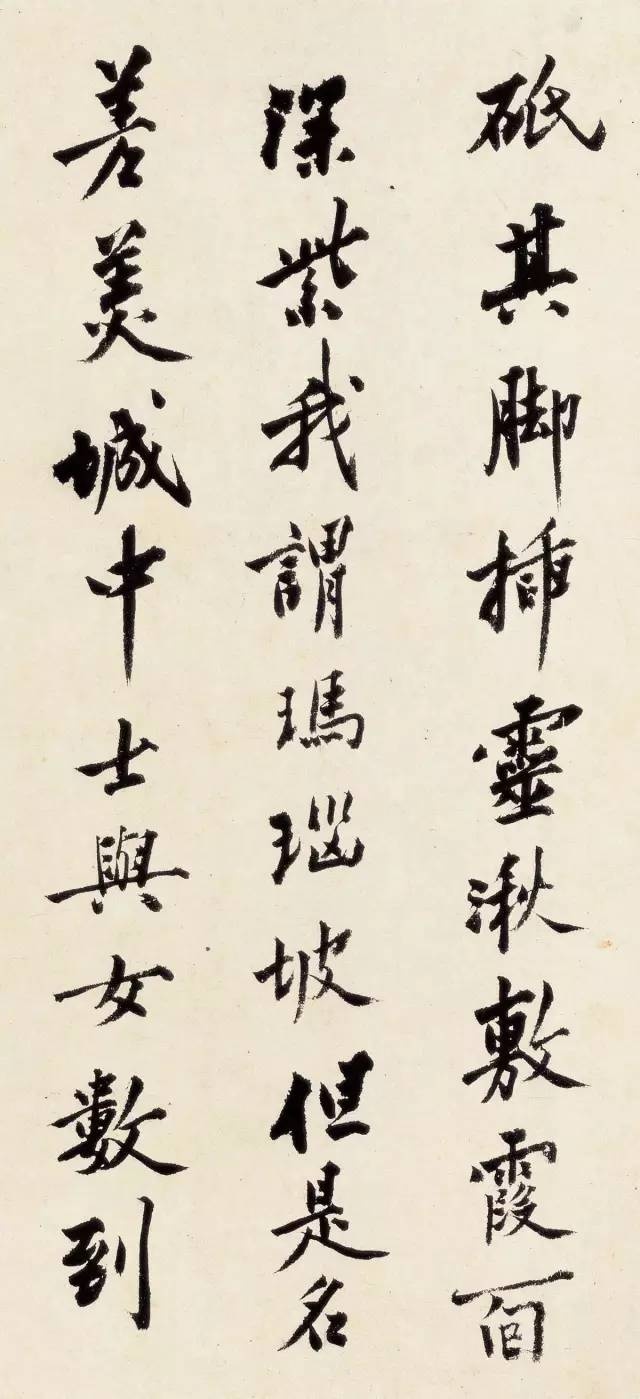 砥其脚插靈湫敷霞面
深紫我謂瑪瑙坡但是名
善美城中士與女數到